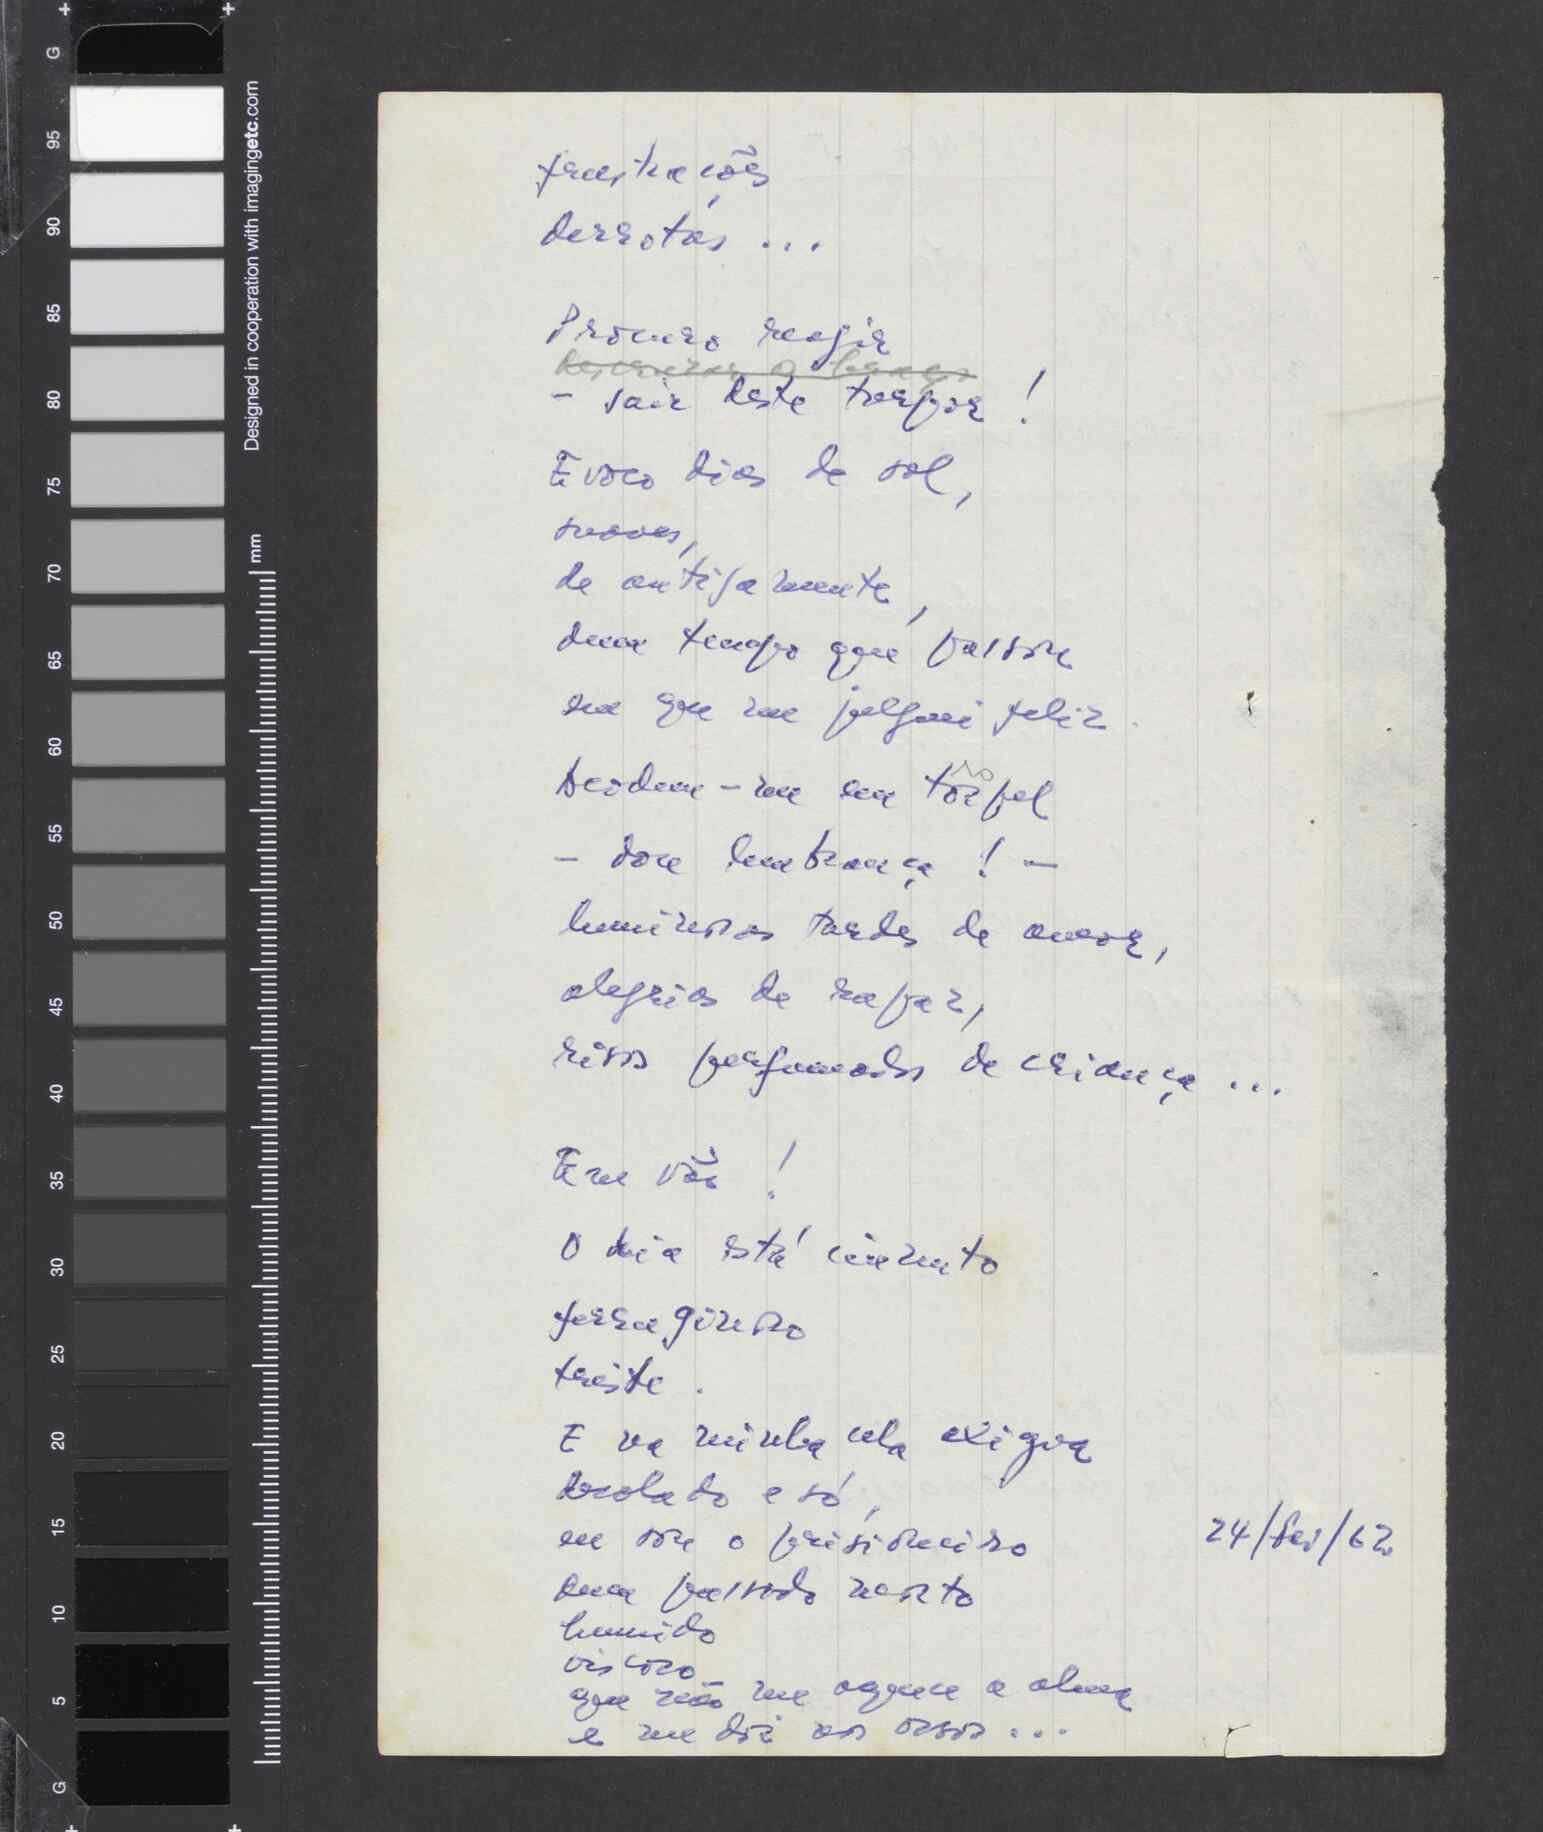 G
95
90
85
80
75
70
65
60
55
50
45
40
35
30
25
20
15
10
5
G
Designed in cooperation with imagingetc.com
mm
frustrações
derrotas ...
Procuro reagir
- sair deste torpor !
Evoco dias de sol,
suaves,
de antigamente,
dum tempo que passou
em que me julguei feliz.
Acodem-me em tropel
- doce lembrança ! -
luminosas tardes de amor,
alegrias de rapaz,
risos perfumados de criança ...
Em vão !
O dia está cinzento
ferruginoso
triste.
E na minha cela exígua
isolado e só,
eu sou o prisioneiro
dum passado morto
humido
viscoso
que não me aquece a alma
e me dói nos ossos ...
24/fev/62